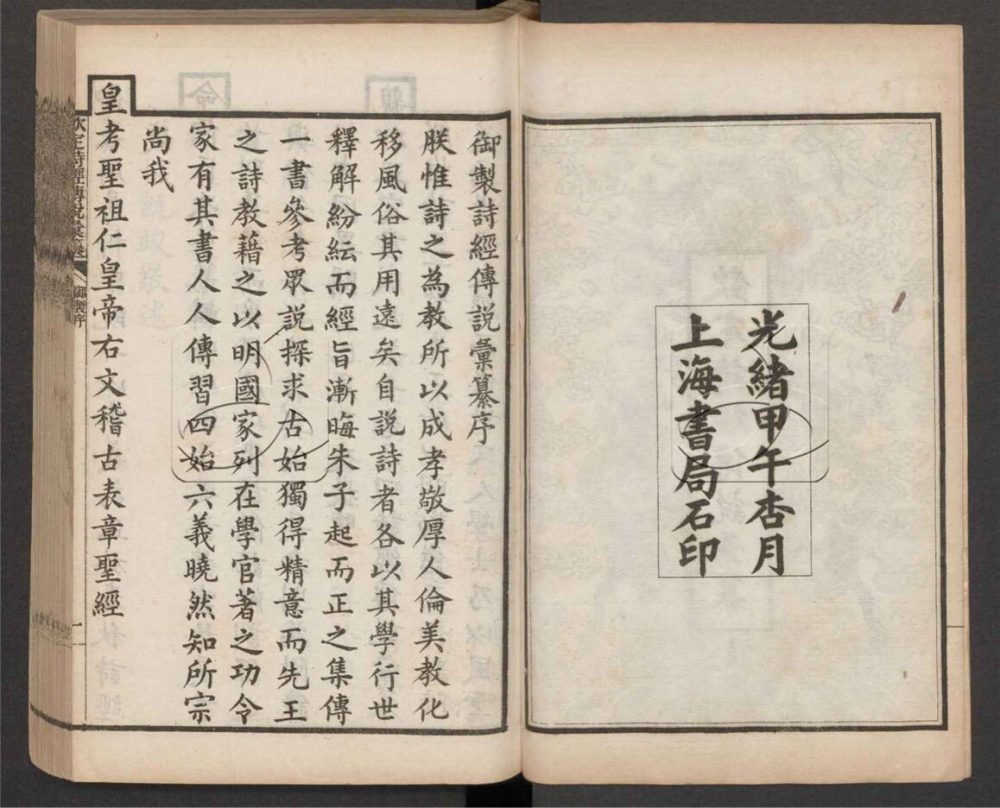 光緒甲午杏月
上海書局石印
御製詩經傳説彙纂序
朕惟詩之為教所以成孝敬厚人倫美教化
移風俗其用遠矣自説詩者各以其學行世
釋解紛紜而經旨漸晦朱子起而正之集傳
一書參考眾説探求古始獨得精意而先王
之詩教藉之以明國家列在學官著之功令
家有其書人人傳習四始六義曉然知所宗
尚我
皇考聖祖仁皇帝右文稽古表章聖經
御製序